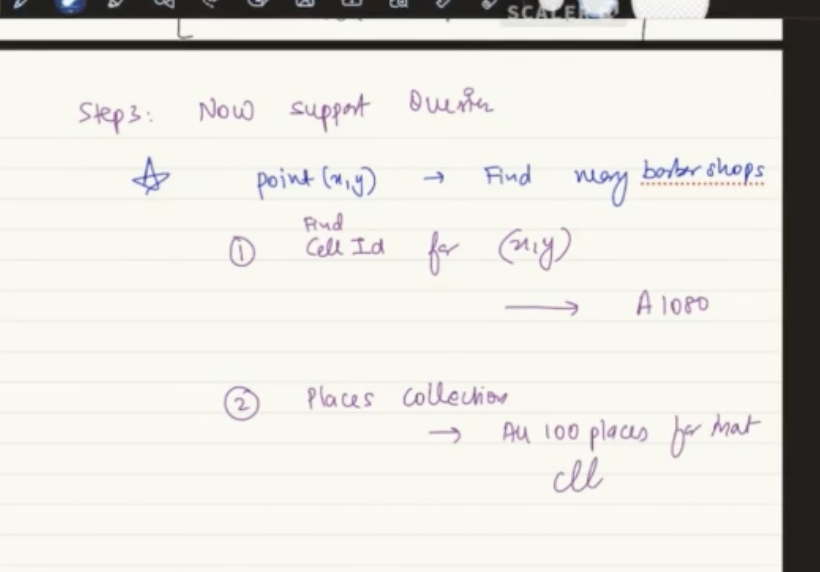 SCALER
Step3: Now support Queries
point (x,y) → Find nearby barber shops
Find
① Cell Id for (x,y)
→ A1080
② Places collection
→ All 100 places for that
cell